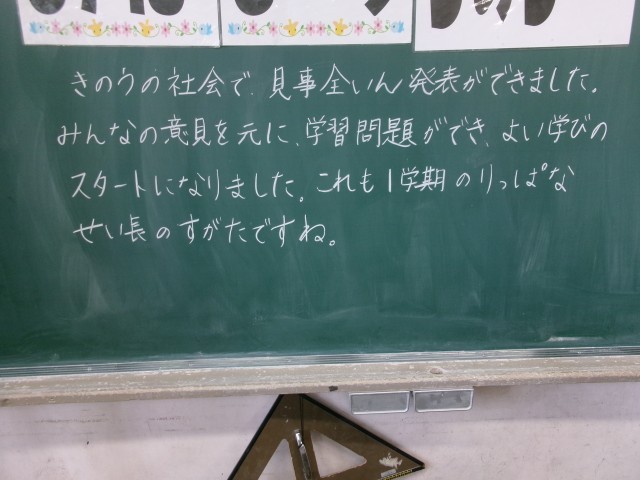 きのうの社会で、見事全いん発表ができました。
みんなの意見を元に、学習問題ができ、よい学びの
スタートになりました。これも1学期のりっぱな
せい長のすがたですね。